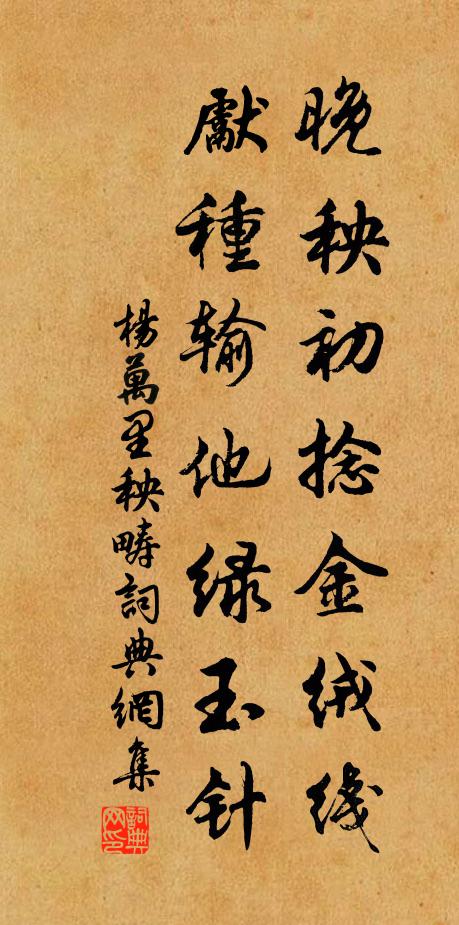 晚秧初捻金绒线
獻種输他绿玉针
楊萬里秧疇詞典網集
詞典
网印